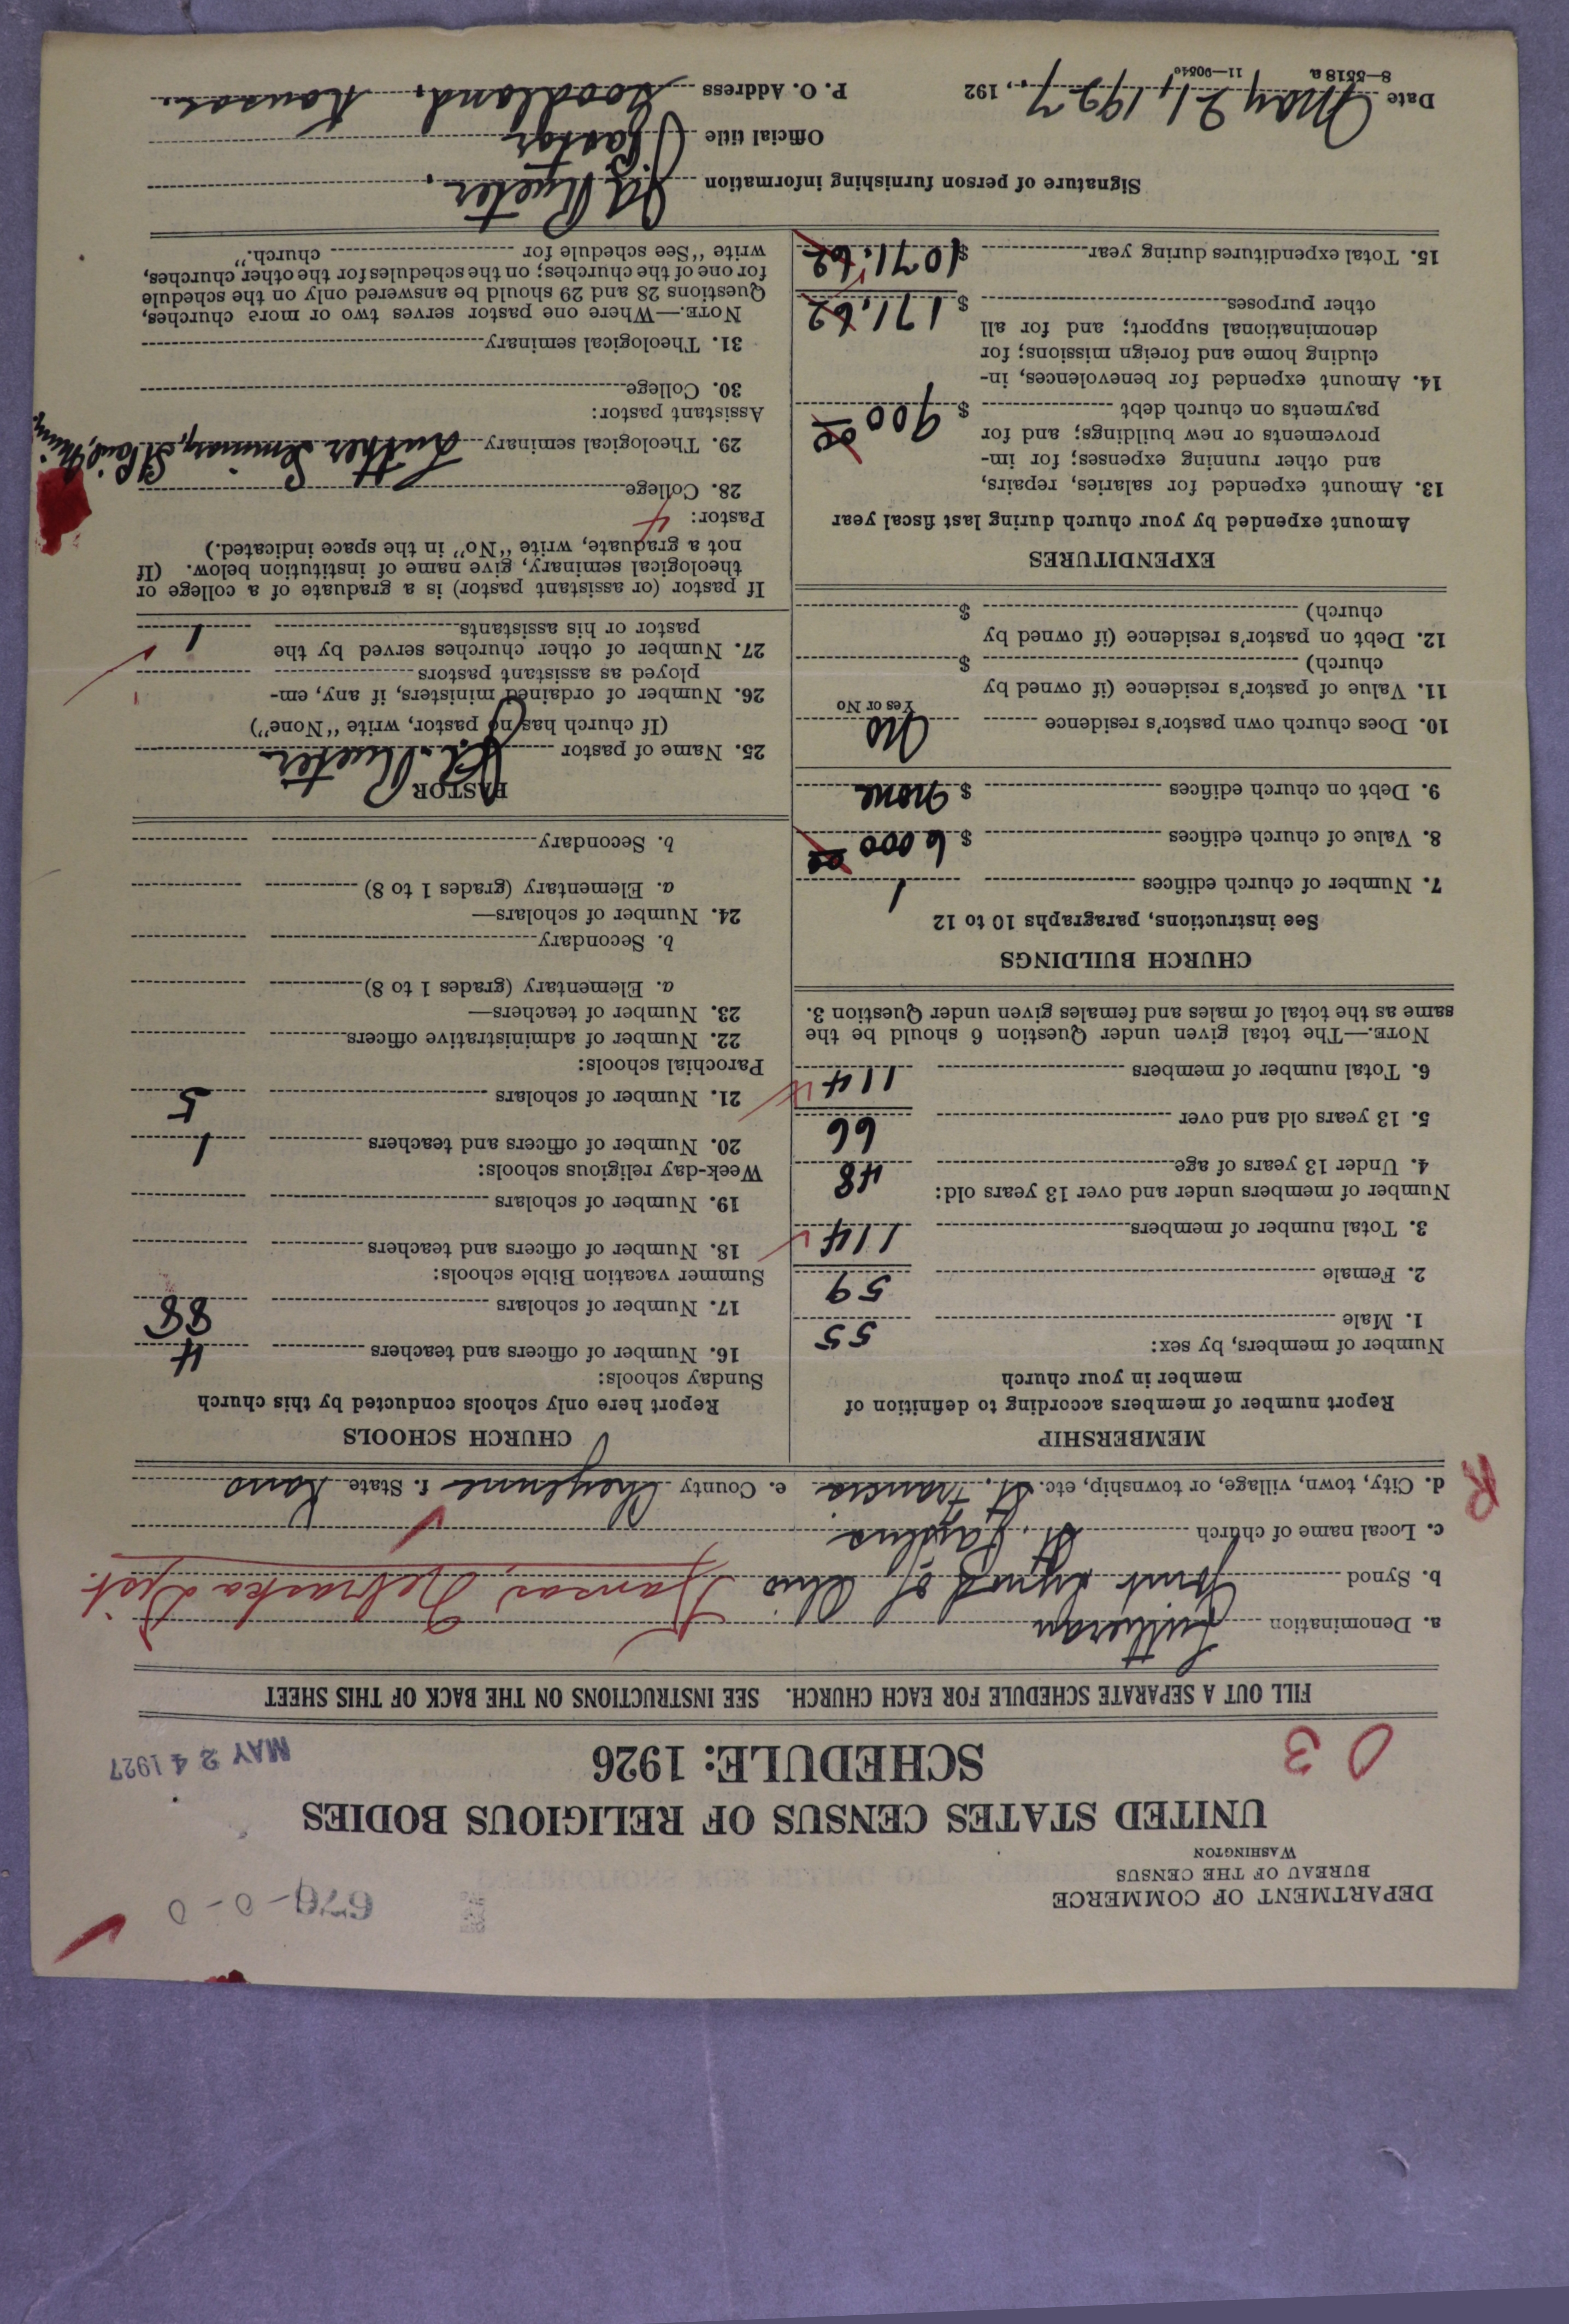 DEPARTMENT OF COMMERCE
BUREAU OF THE CENSUS
WASHINGTON
679-0-0
UNITED STATES CENSUS OF RELIGIOUS BODIES
SCHEDULE: 1926
03
MAY 24 1927
FILL OUT A SEPARATE SCHEDULE FOR EACH CHURCH. SEE INSTRUCTIONS ON THE BACK OF THIS SHEET
a. Denomination Lutheran
b. Synod Joint Synod of Ohio Kansas, Nebraska Dist.
c. Local name of church St.
d. City, town, village, or township, etc. St. Francis e. County Cheyenne f. State Kans
R
MEMBERSHIP
Report number of members according to definition of
member in your church
Number of members, by sex:
1. Male 55
2. Female 59
3. Total number of members 114
Number of members under and over 13 years old:
4. Under 13 years of age 48
5. 13 years old and over 66
6. Total number of members 114
NOTE.—The total given under Question 6 should be the
same as the total of males and females given under Question 3.
CHURCH BUILDINGS
See instructions, paragraphs 10 to 12
7. Number of church edifices 1
8. Value of church edifices $ 6000 00
9. Debt on church edifices $ none
10. Does church own pastor's residence No
Yes or No
11. Value of pastor's residence (if owned by
church) $
12. Debt on pastor's residence (if owned by
church) $
EXPENDITURES
Amount expended by your church during last fiscal year
13. Amount expended for salaries, repairs,
and other running expenses; for im-
provements or new buildings; and for
payments on church debt $ 900 00
14. Amount expended for benevolences, in-
cluding home and foreign missions; for
denominational support; and for all
other purposes $ 171.62
15. Total expenditures during year $ 1071.62
CHURCH SCHOOLS
Report here only schools conducted by this church
Sunday schools:
16. Number of officers and teachers 4
17. Number of scholars 88
Summer vacation Bible schools:
18. Number of officers and teachers
19. Number of scholars
Week-day religious schools:
20. Number of officers and teachers 1
21. Number of scholars 5
Parochial schools:
22. Number of administrative officers
23. Number of teachers—
a. Elementary (grades 1 to 8)
b. Secondary
24. Number of scholars—
a. Elementary (grades 1 to 8)
b. Secondary
PASTOR
25. Name of pastor
(If church has no pastor, write "None")
26. Number of ordained ministers, if any, em-
ployed as assistant pastors
27. Number of other churches served by the
pastor or his assistants 1
If pastor (or assistant pastor) is a graduate of a college or
theological seminary, give name of institution below. (If
not a graduate, write "No" in the space indicated.)
Pastor: 4
28. College
29. Theological seminary Luther Seminary, St Paul, Minn
Assistant pastor:
30. College
31. Theological seminary
NOTE.—Where one pastor serves two or more churches,
Questions 28 and 29 should be answered only on the schedule
for one of the churches; on the schedules for the other churches,
write "See schedule for church."
Signature of person furnishing information
Official title Pastor
Date May 21, 1927, 192 7 P. O. Address Goodland, Kansas.
8—5518a 11—90540